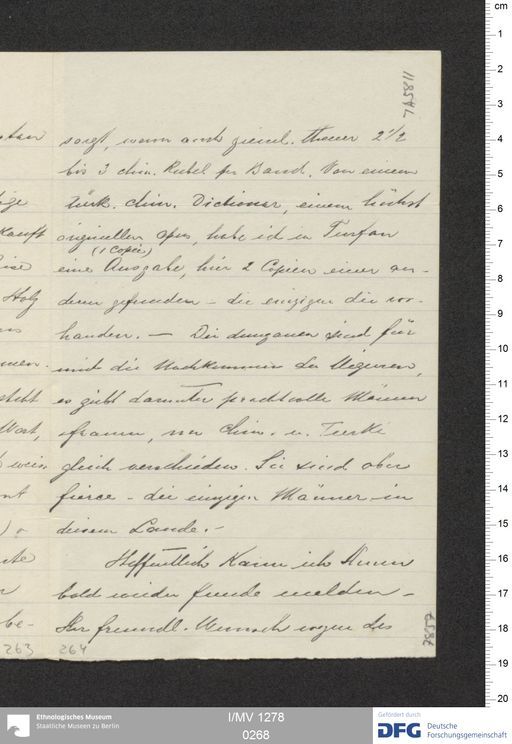 7458/11
sorgt, wenn auch zieml. theuer 2 1/2
bis 3 chin. Rubel per Band. Von einem
türk. chin. Dictionar, einem höchst
originellen opus, habe ich in Turfan
(1 Copie)
eine Ausgabe, hier 2 Copien einer an-
deren gefunden – die einzigen die vor-
handen. — Die dunganen sind für
mich die Nachkommen der Uiguren,
es giebt darunter prachtvolle Männer
frauen, von Chin. u. Turki
gleich verschieden. Sie sind aber
fierce – die einzigen Männer in
diesem Lande. –
Hoffentlich kann ich Ihnen
bald wieder funde melden –
Ihr freundl. Wunsch wegen des
263
264
7857
I/MV 1278
0268
Ethnologisches Museum
Staatliche Museen zu Berlin
Gefördert durch
DFG Deutsche
Forschungsgemeinschaft
cm
1
2
3
4
5
6
7
8
9
10
11
12
13
14
15
16
17
18
19
20